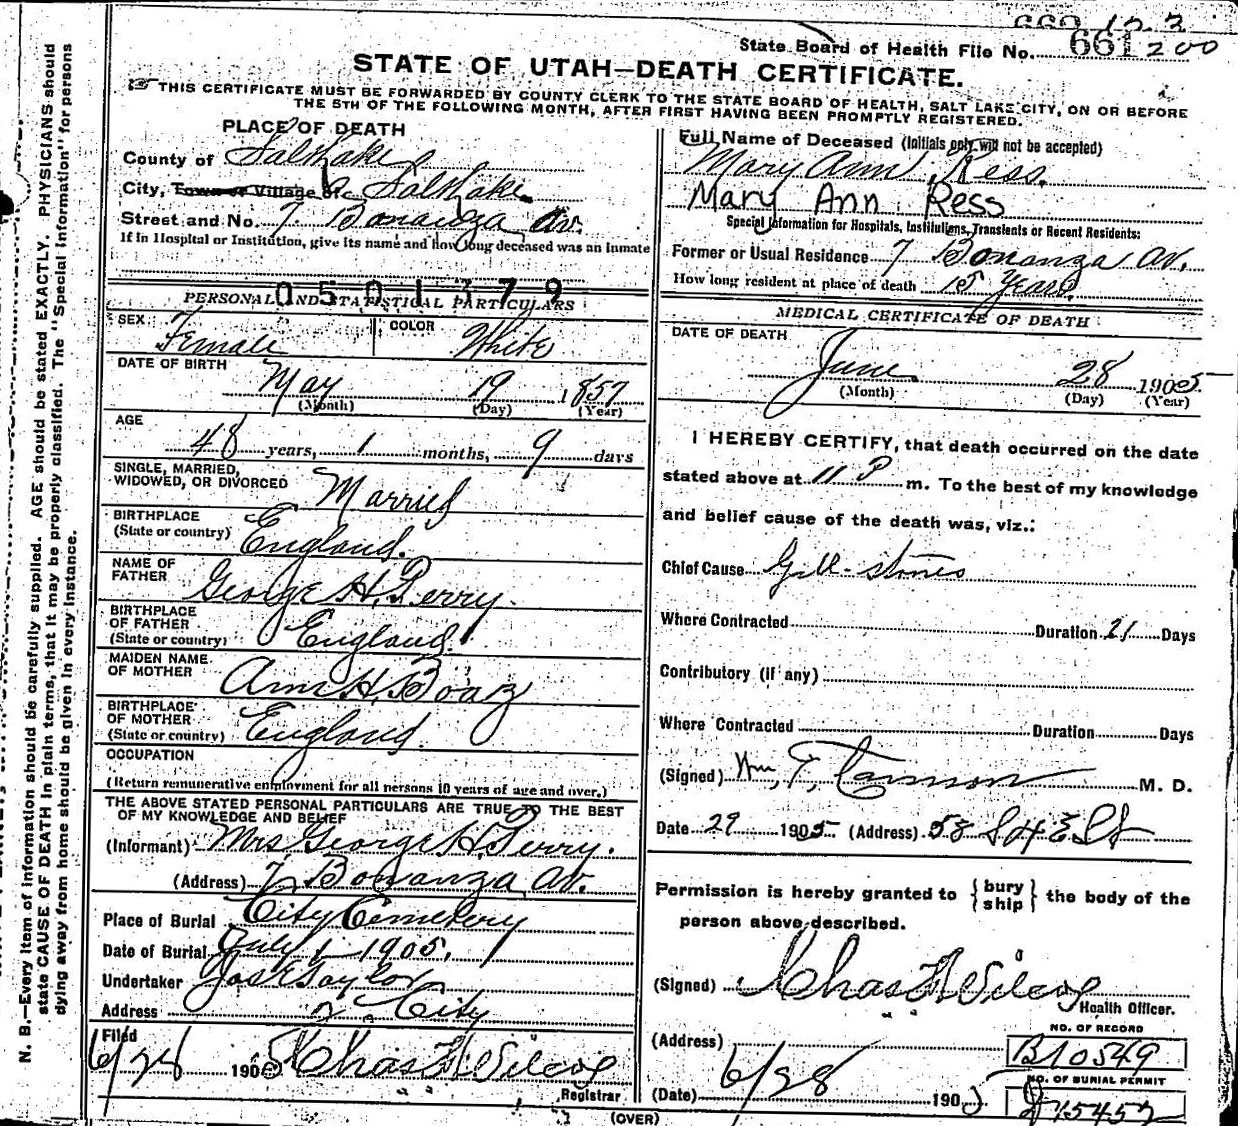 State Board of Health File No. 661 200
STATE OF UTAH—DEATH CERTIFICATE.
THIS CERTIFICATE MUST BE FORWARDED BY COUNTY CLERK TO THE STATE BOARD OF HEALTH, SALT LAKE CITY, ON OR BEFORE
THE 5TH OF THE FOLLOWING MONTH, AFTER FIRST HAVING BEEN PROMPTLY REGISTERED.
N. B.—Every item of information should be carefully supplied. AGE should be stated EXACTLY. PHYSICIANS should
state CAUSE OF DEATH in plain terms, that it may be properly classified. The "Special Information" for persons
dying away from home should be given in every instance.
PLACE OF DEATH
County of Salt Lake
City, Town or Village of Salt Lake
Street and No. 7 Bonanza Av.
If in Hospital or Institution, give its name and how long deceased was an inmate
0501779
PERSONAL AND STATISTICAL PARTICULARS
SEX Female COLOR White
DATE OF BIRTH
May 19 1857
(Month) (Day) (Year)
AGE
48 years, 1 months, 9 days
SINGLE, MARRIED,
WIDOWED, OR DIVORCED Married
BIRTHPLACE
(State or country) England.
NAME OF
FATHER George H. Perry.
BIRTHPLACE
OF FATHER
(State or country) England.
MAIDEN NAME
OF MOTHER Ann H. Boaz
BIRTHPLACE
OF MOTHER
(State or country) England.
OCCUPATION
(Return remunerative employment for all persons 10 years of age and over.)
THE ABOVE STATED PERSONAL PARTICULARS ARE TRUE TO THE BEST
OF MY KNOWLEDGE AND BELIEF
(Informant) Mrs George H. Perry.
(Address) 7 Bonanza Av.
Place of Burial City Cemetery
Date of Burial July 1 1905.
Undertaker Jos E Taylor
Address City
Filed
6/28 1905 Chas F. Wilcox
Registrar
Full Name of Deceased (Initials only will not be accepted)
Mary Ann Ress.
Mary Ann Ress
Special Information for Hospitals, Institutions, Transients or Recent Residents:
Former or Usual Residence 7 Bonanza Av.
How long resident at place of death 15 Years.
MEDICAL CERTIFICATE OF DEATH
DATE OF DEATH
June 28 1905
(Month) (Day) (Year)
I HEREBY CERTIFY, that death occurred on the date
stated above at 11 P m. To the best of my knowledge
and belief cause of the death was, viz.:
Chief Cause Gall-stones
Where Contracted Duration 21 Days
Contributory (if any)
Where Contracted Duration Days
(Signed) Wm. T. Cannon M. D.
Date 29 1905 (Address) 58 S 4 E St
Permission is hereby granted to { bury ship } the body of the
person above described.
(Signed) Chas F. Wilcox
Health Officer.
(Address)
NO. OF RECORD
B10549
(Date) 6/28 1905
NO. OF BURIAL PERMIT
(OVER)